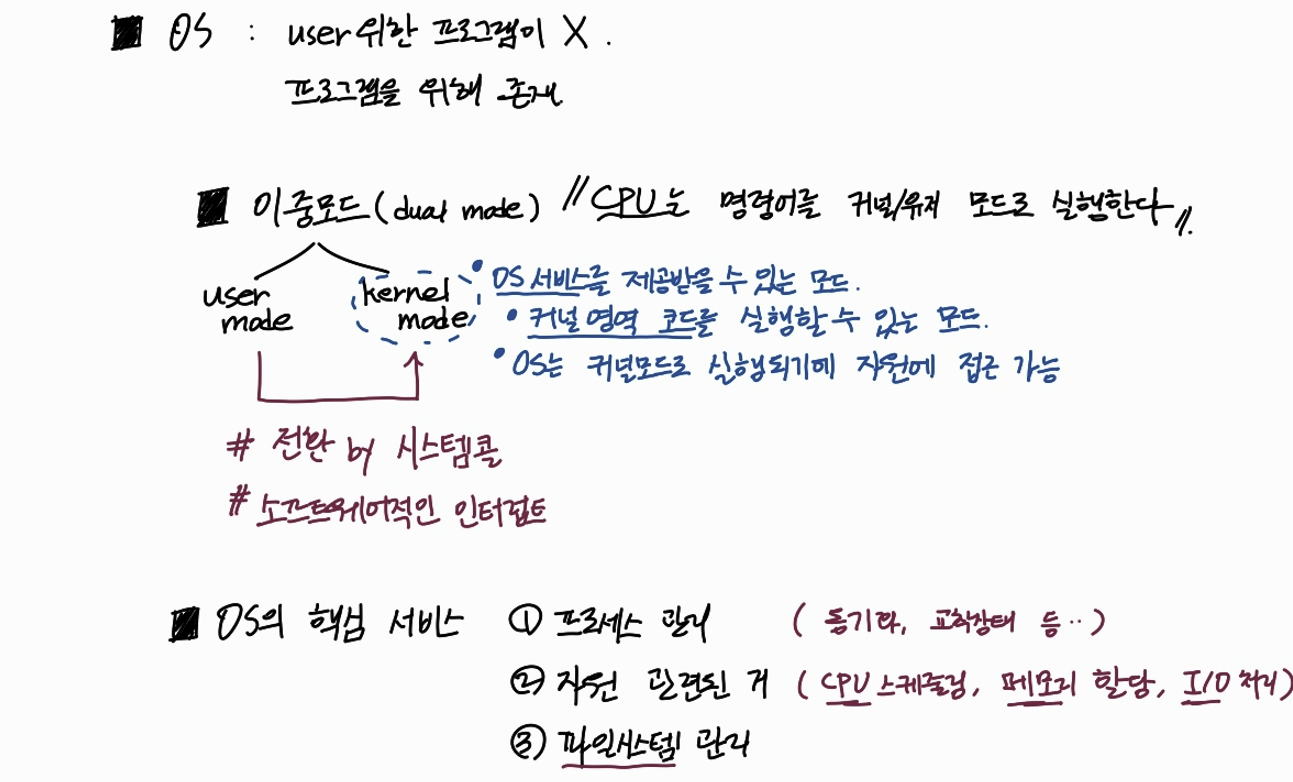 OS : user 위한 프로그램이 X.
프로그램을 위해 존재
이중모드 (dual mode) // CPU는 명령어를 커널/유저 모드로 실행한다 //.
user mode
kernel mode
• OS 서비스를 제공받을 수 있는 모드.
• 커널 영역 코드를 실행할 수 있는 모드.
• OS는 커널모드로 실행되기에 자원에 접근 가능
# 전환 by 시스템콜
# 소프트웨어적인 인터럽트
OS의 핵심 서비스 ① 프로세스 관리 (동기화, 교착상태 등..)
② 자원 관련된 거 (CPU 스케줄링, 메모리 할당, I/O 처리)
③ 파일시스템 관리